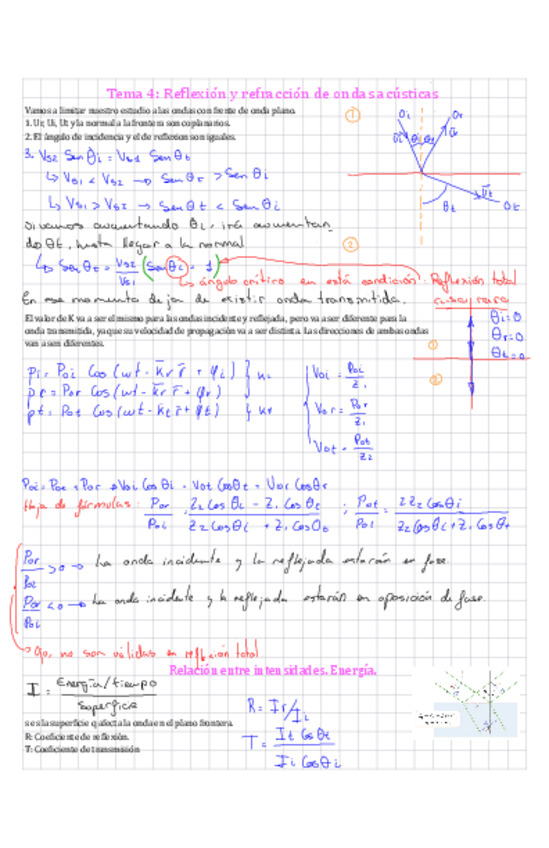 Tema 4: Reflexión y refracción de ondas acústicas
Vamos a limitar nuestro estudio a las ondas con frente de onda plano.
1. Ur, Ui, Ut y la normal a la frontera son coplanarios.
2. El ángulo de incidencia y el de reflexion son iguales.
3. Vs2 Sen θi = Vs1 Sen θt
↳ Vs1 < Vs2 → Sen θt > Sen θi
↳ Vs1 > Vs2 → Sen θt < Sen θi
Si vamos aumentando θi, irá aumentan
do θt, hasta llegar a la normal
↳ Sen θt = Vs2/Vs1 (Sen θi = 1)
↳ ángulo crítico en está condición: Reflexión total
En ese momento deja de existir onda transmitida.
El valor de K va a ser el mismo para las ondas incidente y reflejada, pero va a ser diferente para la
onda transmitida, ya que su velocidad de propagación va a ser distinta. Las direcciones de ambas ondas
van a sen diferentes.
caso raro
θi=0
θr=0
θt=0
pi = Poi Cos (ωt - k̄r r̄ + φi)
pr = Por Cos (ωt - k̄r r̄ + φr)
pt = Pot Cos (ωt - k̄t r̄ + φt)
Voi = Poi/Z1
Vor = Por/Z1
Vot = Pot/Z2
Hoja de fórmulas:
Por/Poi > 0 → La onda incidente y la reflejada estarán en fase.
Por/Poi < 0 → La onda incidente y la reflejada estarán en oposición de fase.
Ojo, no son válidas en reflexión total
Relación entre intensidades. Energía.
I = Energía/tiempo / Superficie
s es la superficie q afecta la onda en el plano frontera.
R: Coeficiente de reflexión.
T: Coeficiente de transmisión
R = Ir/Ii
T = It Cos θt / Ii Cos θi